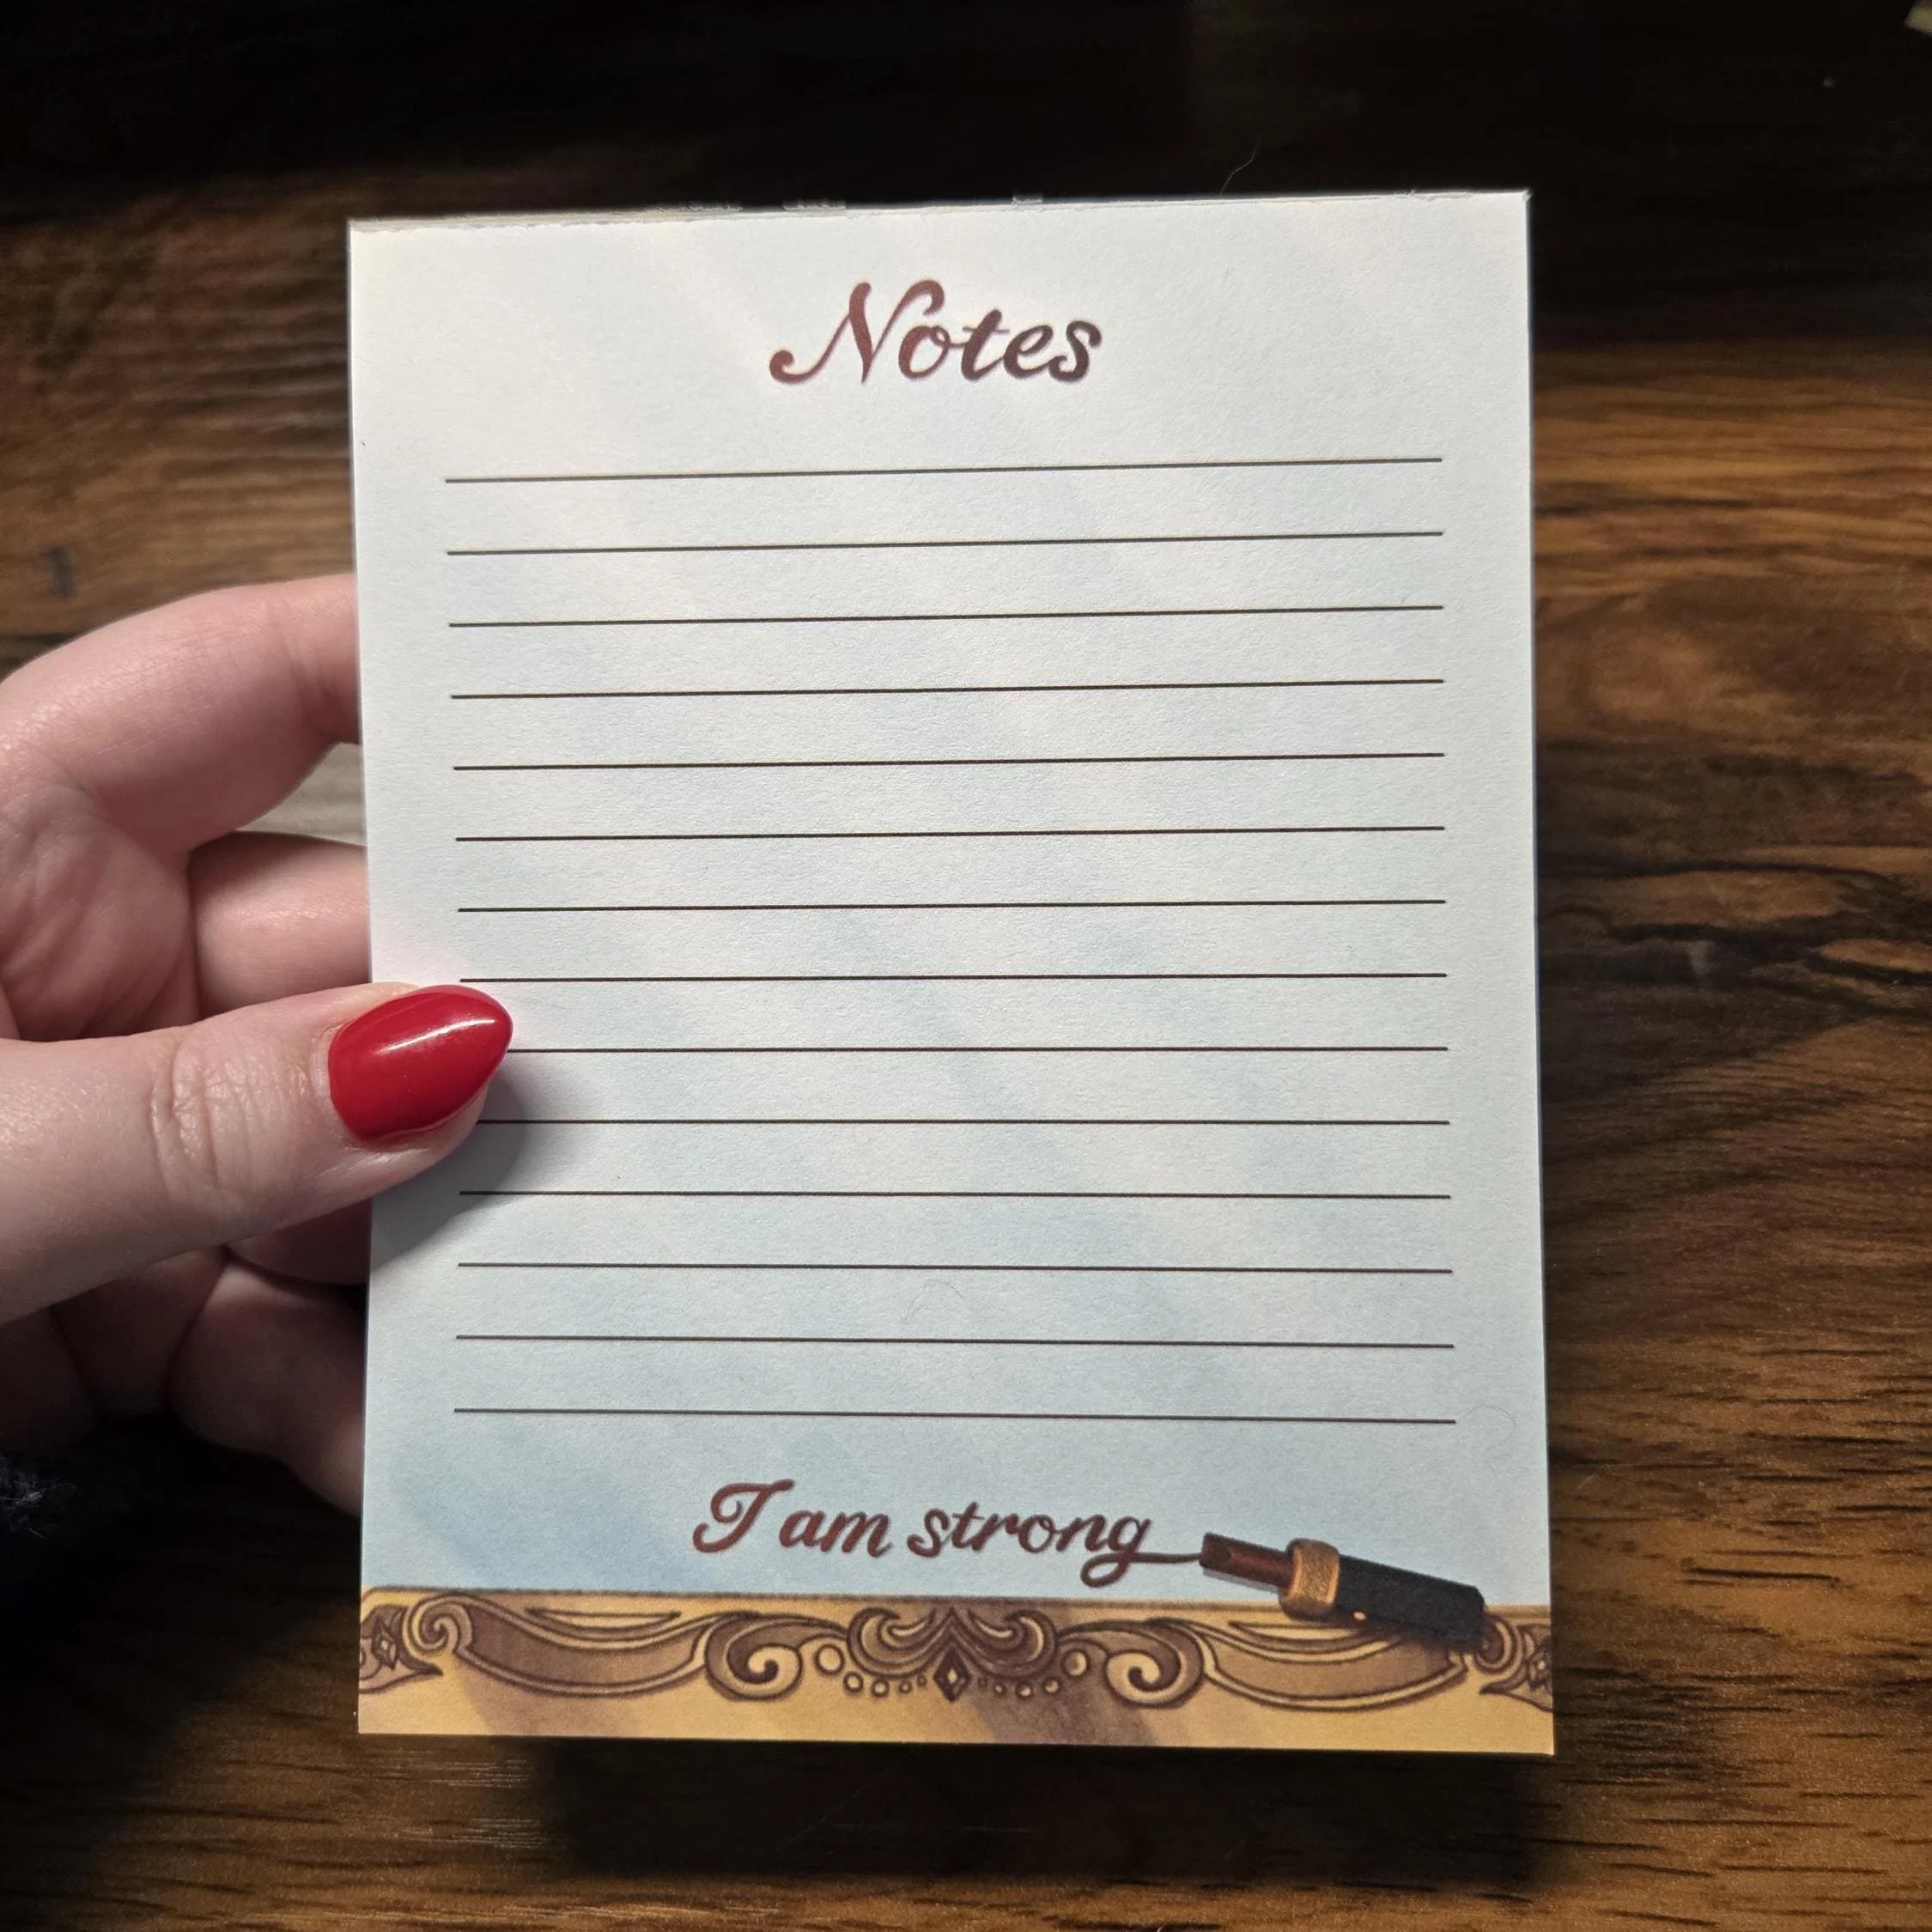 Notes
I am strong